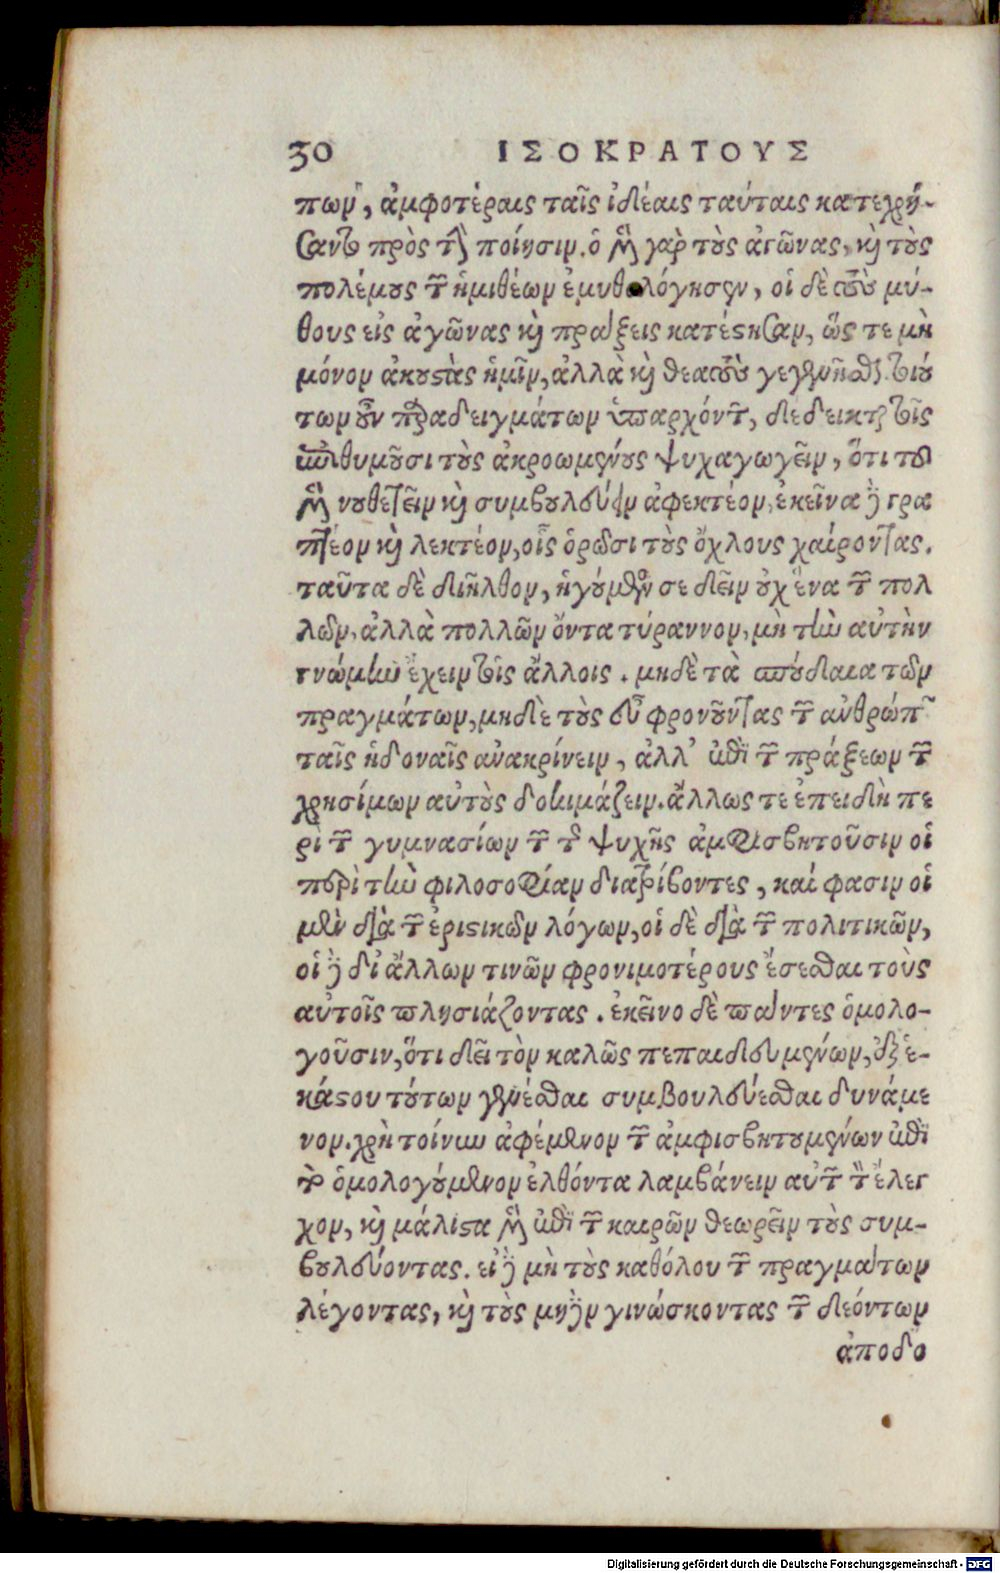 30 ΙΣΟΚΡΑΤΟΥΣ
πων, ἀμφοτέραις ταῖς ἰδέαις ταύταις κατεχρή-
σαντο πρὸς τὴν ποίησιν. ὁ μὲν γὰρ τοὺς ἀγῶνας, καὶ τοὺς
πολέμους τῶν ἡμιθέων ἐμυθολόγησεν, οἱ δὲ τοὺς μύ-
θους εἰς ἀγῶνας καὶ πράξεις κατέστησαν, ὥς τε μὴ
μόνον ἀκουστὰς ἡμῖν, ἀλλὰ καὶ θεατοὺς γενέσθαι. τοιού
των οὖν παραδειγμάτων ὑπαρχόντων, δέδεικται τοῖς
ἐπιθυμοῦσι τοὺς ἀκροωμένους ψυχαγωγεῖν, ὅτι τοῦ
μὲν νουθετεῖν καὶ συμβουλεύειν ἀφεκτέον, ἐκεῖνα δὲ γρα
πτέον καὶ λεκτέον, οἷς ὁρῶσι τοὺς ὄχλους χαίροντας.
ταῦτα δὲ διῆλθον, ἡγούμενός σε δεῖν οὐχ ἕνα τῶν πολ
λῶν, ἀλλὰ πολλῶν ὄντα τύραννον, μὴ τὴν αὐτὴν
γνώμην ἔχειν τοῖς ἄλλοις. μηδὲ τὰ σπουδαῖα τῶν
πραγμάτων, μηδὲ τοὺς εὖ φρονοῦντας τῶν ἀνθρώπων
ταῖς ἡδοναῖς ἀνακρίνειν, ἀλλ' ἐπὶ τῶν πράξεων τῶν
χρησίμων αὐτοὺς δοκιμάζειν. ἄλλως τε ἐπειδὴ πε
ρὶ τῶν γυμνασίων τῶν τῆς ψυχῆς ἀμφισβητοῦσιν οἱ
περὶ τὴν φιλοσοφίαν διατρίβοντες, καί φασιν οἱ
μὲν διὰ τῶν ἐριστικῶν λόγων, οἱ δὲ διὰ τῶν πολιτικῶν,
οἱ δὲ δι' ἄλλων τινῶν φρονιμοτέρους ἔσεσθαι τοὺς
αὐτοῖς πλησιάζοντας. ἐκεῖνο δὲ πάντες ὁμολο-
γοῦσιν, ὅτι δεῖ τὸν καλῶς πεπαιδευμένων, ἐξ ἑ-
κάστου τούτων γενέσθαι συμβουλεύεσθαι δυνάμε
νον. χρὴ τοίνυν ἀφέμενον τῶν ἀμφισβητουμένων ἐπὶ
τὸ ὁμολογούμενον ἐλθόντα λαμβάνειν αὐτῶν τὸν ἔλεγ
χον, καὶ μάλιστα μὲν ἐπὶ τῶν καιρῶν θεωρεῖν τοὺς συμ-
βουλεύοντας. εἰ δὲ μὴ τοὺς καθόλου τῶν πραγμάτων
λέγοντας, καὶ τοὺς μηδὲν γινώσκοντας τῶν δεόντων
ἀποδο
Digitalisierung gefördert durch die Deutsche Forschungsgemeinschaft - DFG